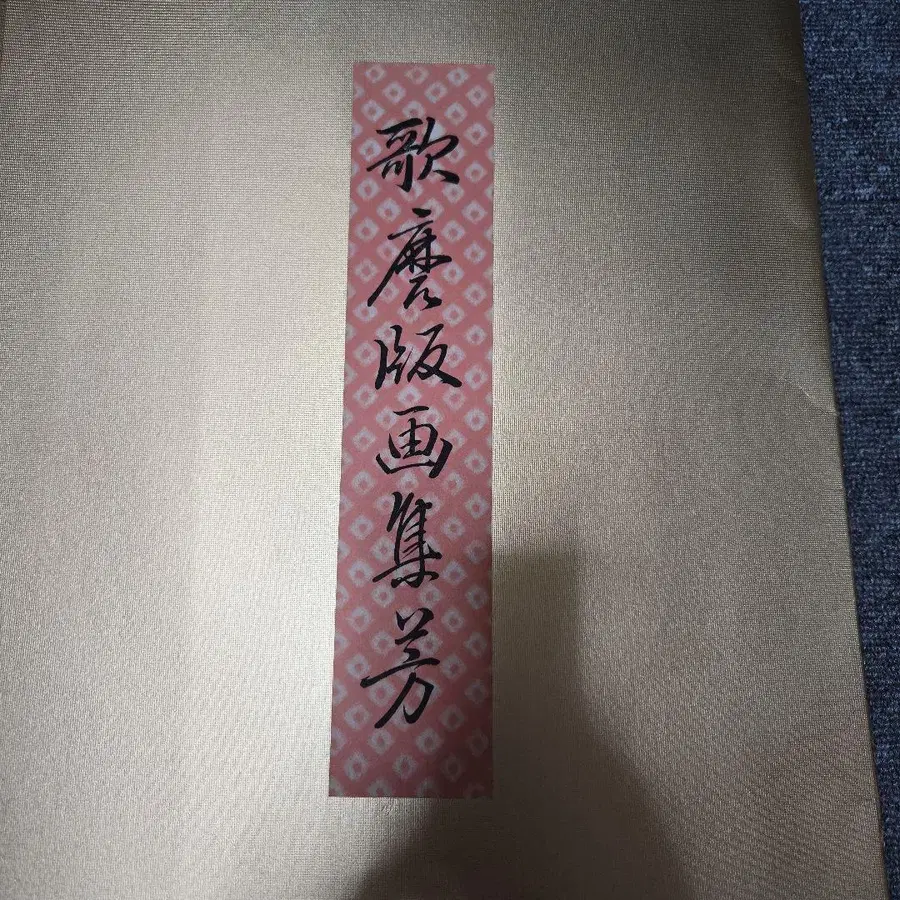 歌麿版画集芳